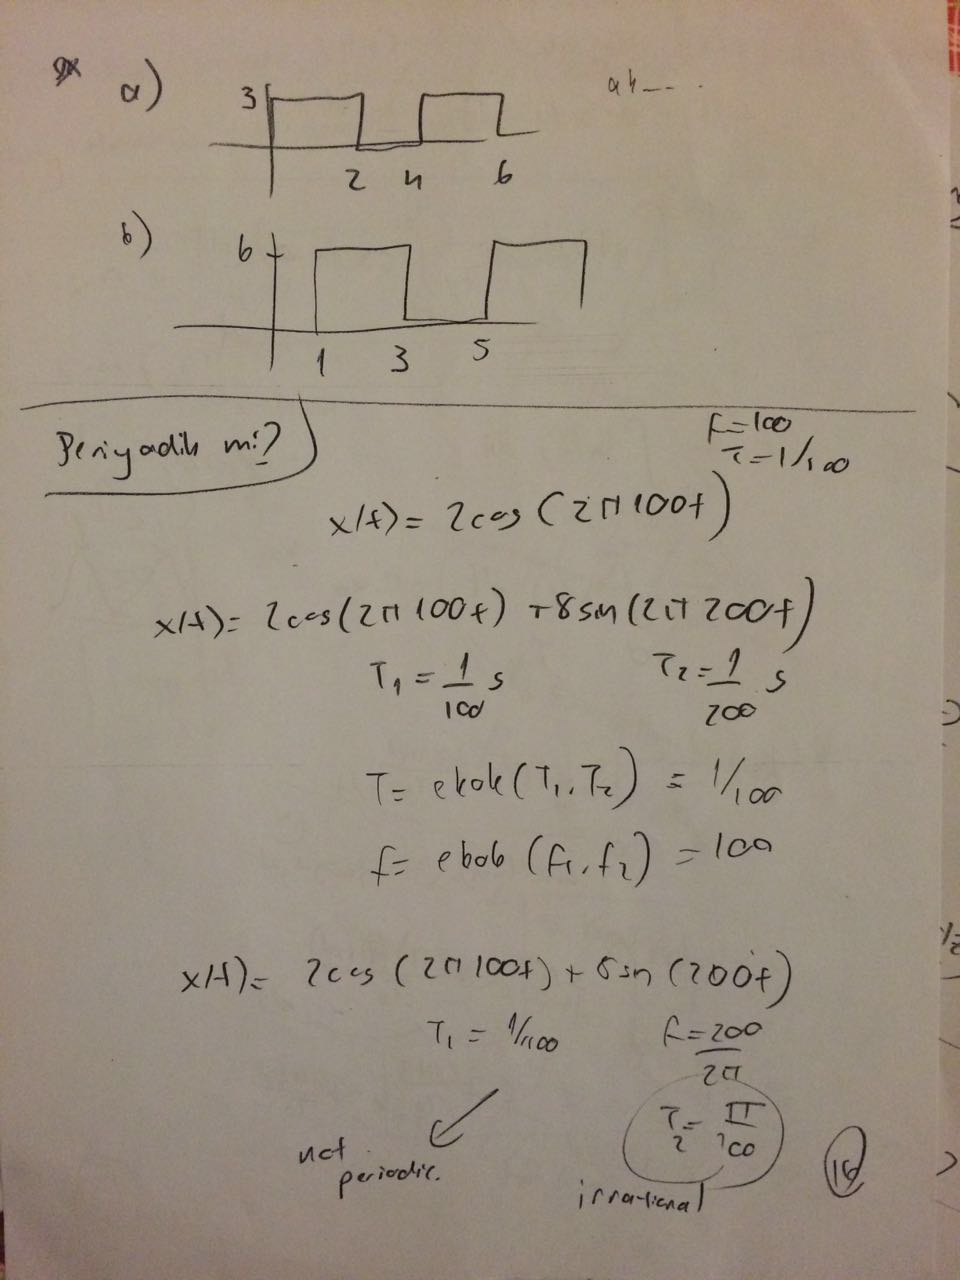 a)
3
2 4 6
b)
6
1 3 5
Periyadik mi?
f=100
T=1/100
x(t)= 2cos(2π100t)
x(t)= 2cos(2π100t) +8sin(2π200t)
T₁ = 1/100 s T₂ = 1/200 s
T= ekok(T₁,T₂) = 1/100
f= ebob(f₁,f₂) = 100
x(t)= 2cos(2π100t)+8sin(200t)
T₁ = 1/100 f=200/2π
T₂ = π/100
not
periodic.
irrational